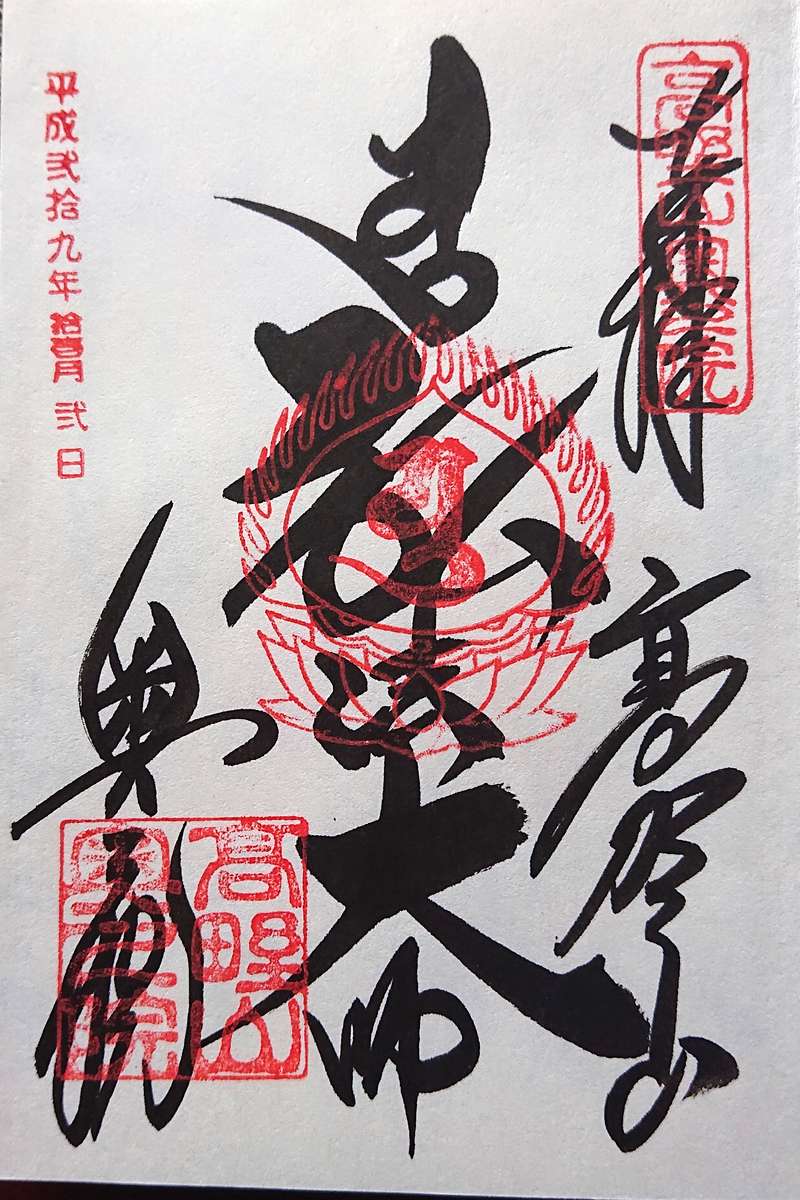 奉拝
高野山奥之院
高野山
弘法大師
平成弐拾九年拾壹月弐日
奥之院
高野山
奥之院